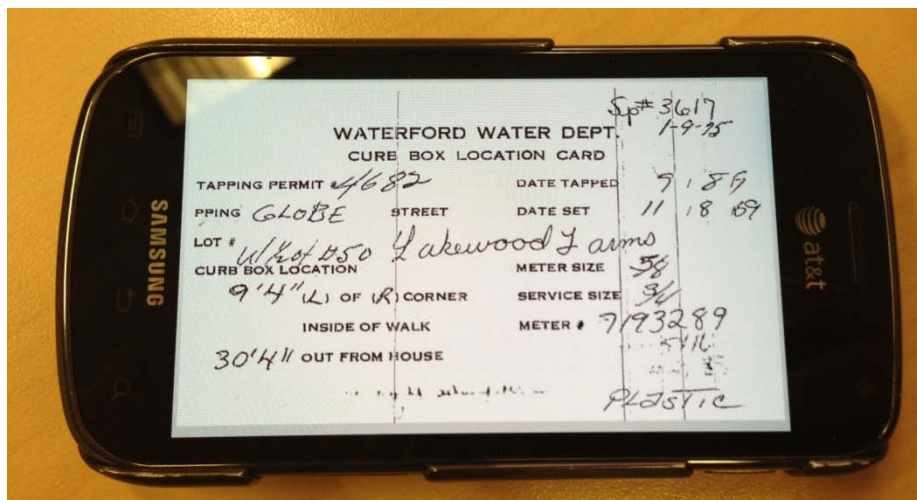 SAMSUNG
at&t
Sp# 3617
WATERFORD WATER DEPT. 1-9-75
CURB BOX LOCATION CARD
TAPPING PERMIT #4682 DATE TAPPED 9
PPING GLOBE STREET DATE SET 11 18 69
LOT # W/½ of 50 Lakewood Farms
CURB BOX LOCATION METER SIZE 5/8
9'4" (L) OF (R) CORNER SERVICE SIZE 3/4
INSIDE OF WALK METER # 7193289
30'4" OUT FROM HOUSE
PLASTIC